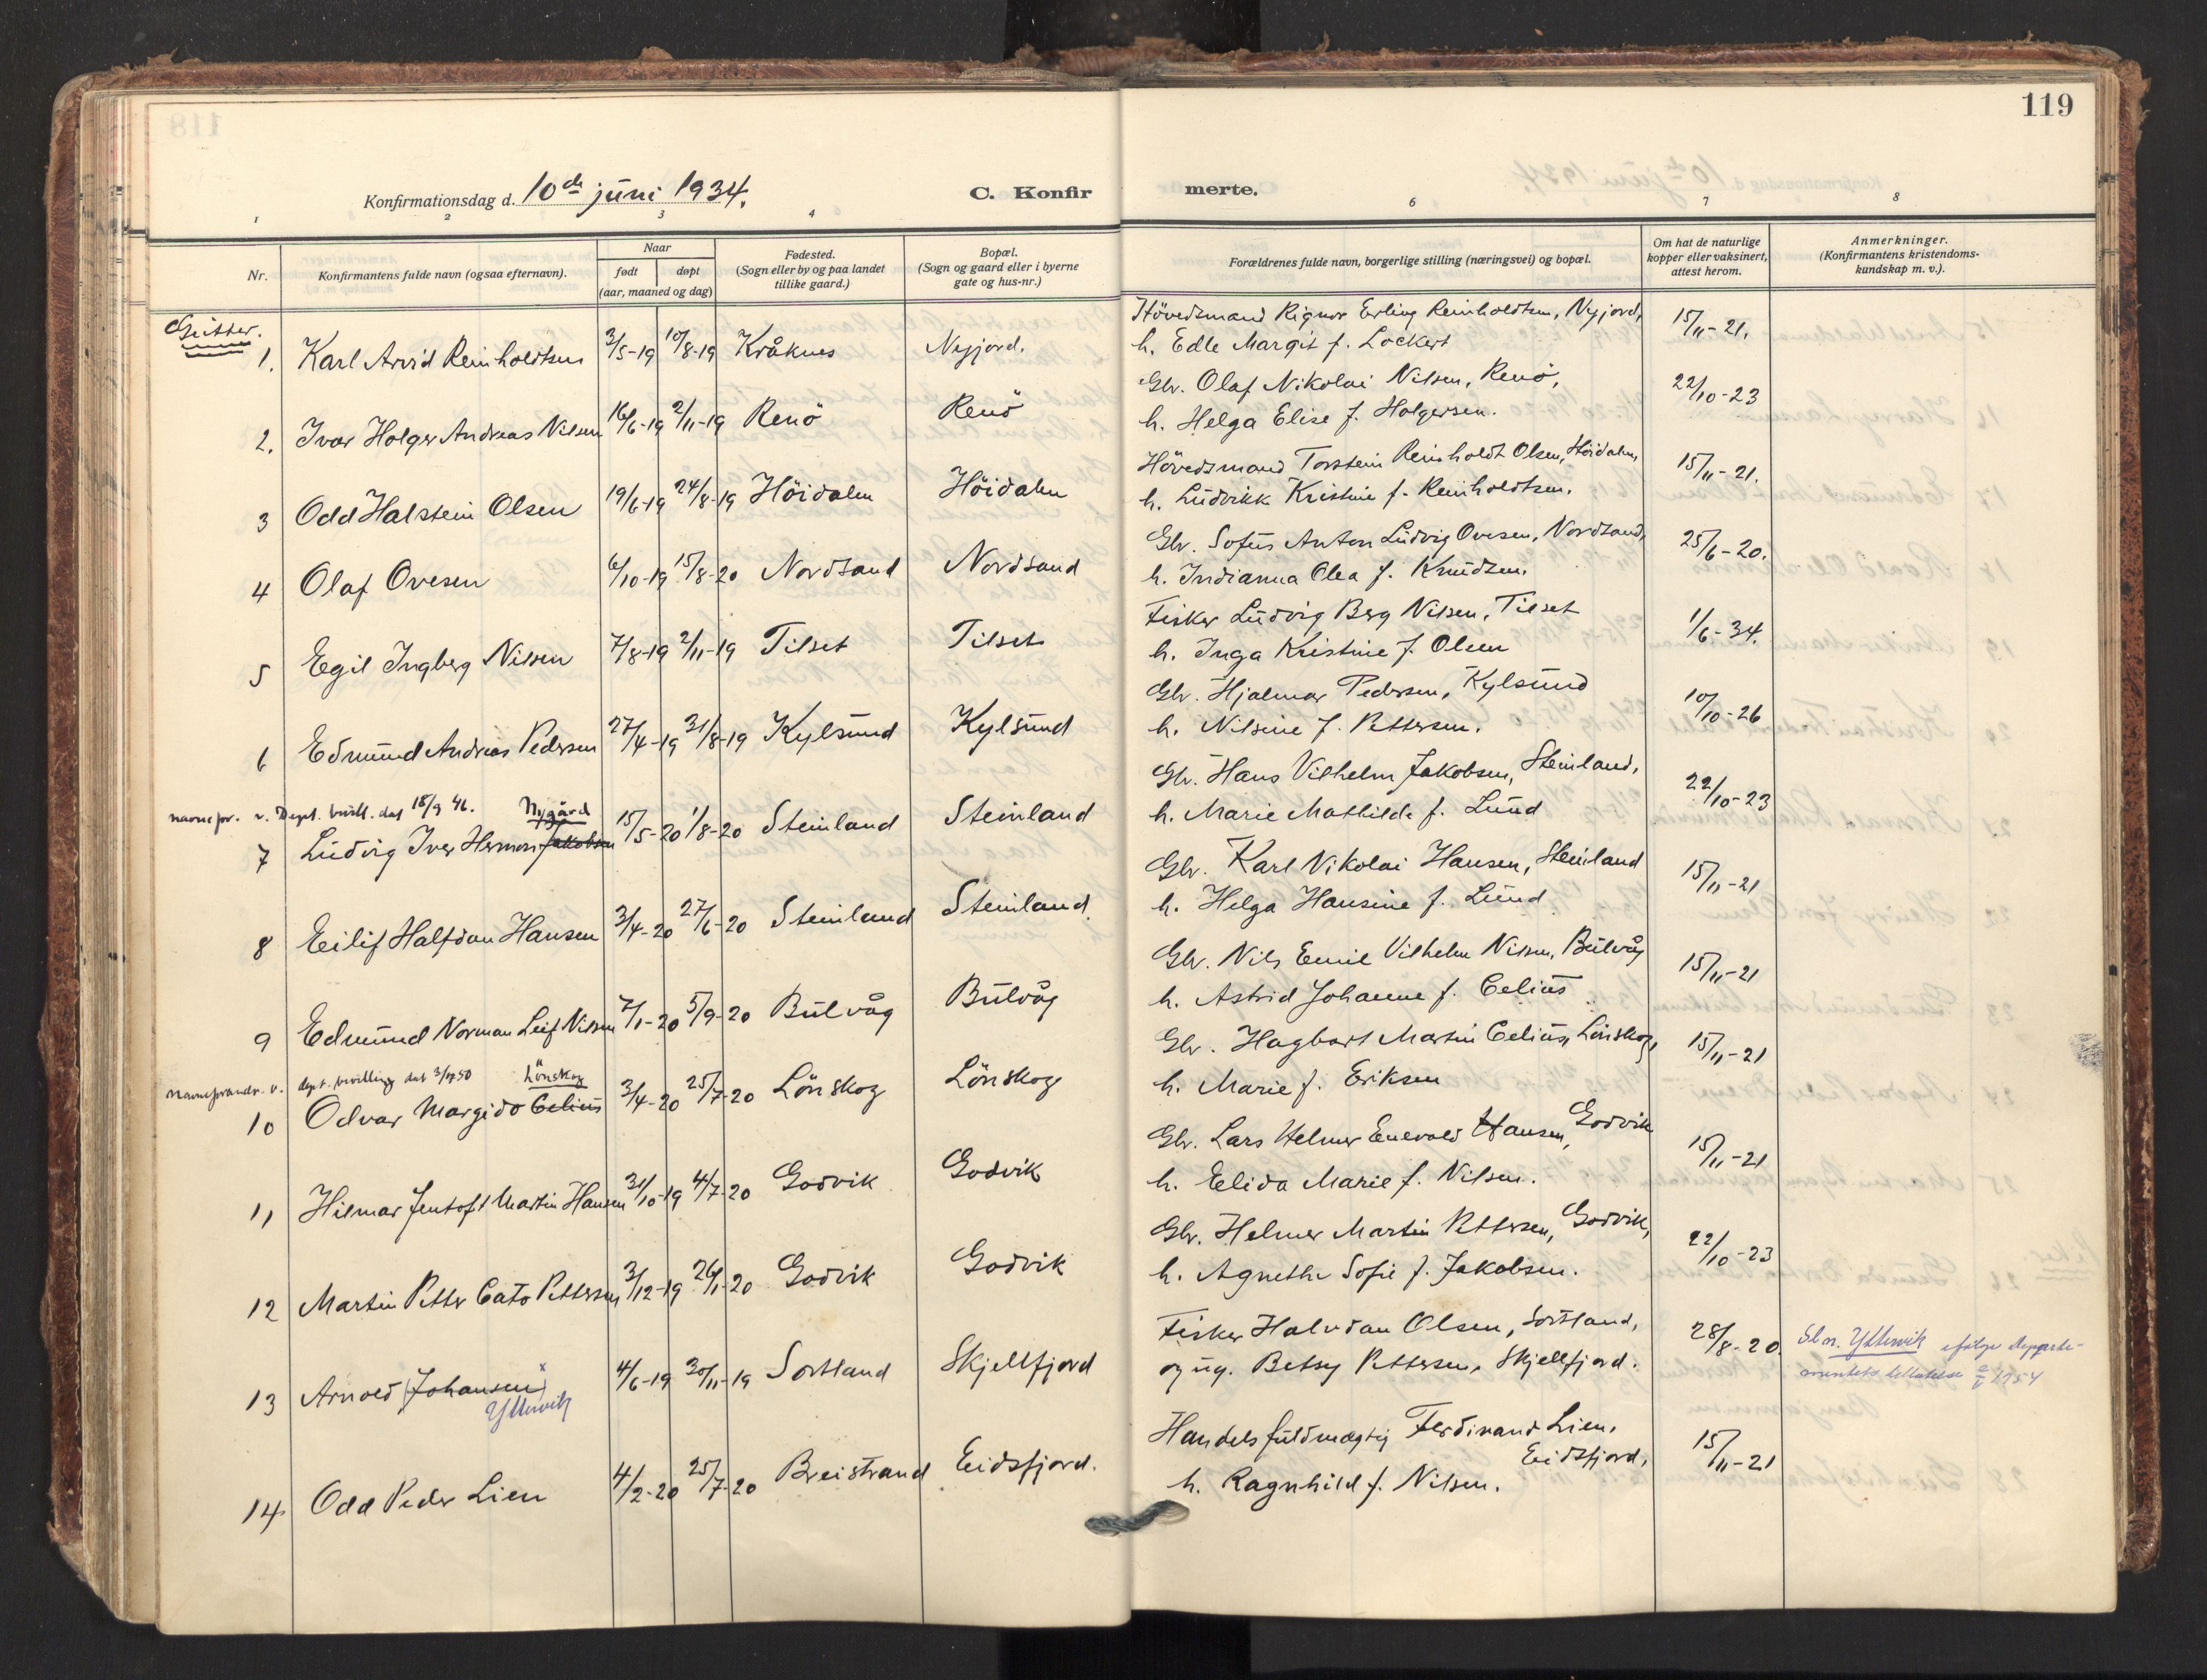 119
Konfirmationsdag d. 10de juni 1934.
C. Konfir
merte.
1 2 3 4 6 7 8
Nr.
Konfirmantens fulde navn (ogsaa efternavn).
Naar
født
døpt
(aar, maaned og dag)
Fødested.
(Sogn eller by og paa landet
tillike gaard.)
Bopæl.
(Sogn og gaard eller i byerne
gate og hus-nr.)
Forældrenes fulde navn, borgerlige stilling (næringsvei) og bopæl.
Om hat de naturlige
kopper eller vaksinert,
attest herom.
Anmerkninger.
(Konfirmantens kristendoms-
kundskap m. v.).
Gutter.
1. Karl Arvid Reinholdtsen 3/5-19 10/8-19 Kråknes Nyjord.
Hövedsmand Rignor Erling Reinholdtsen, Nyjord, 15/11-21.
h. Edle Margit f. Lockert
2. Ivar Holger Andreas Nilsen 16/6-19 2/11-19 Renö Renö
Gbr. Olaf Nikolai Nilsen, Renö, 22/10-23
h. Helga Elise f. Holgersen.
3 Odd Halstein Olsen 19/6-19 24/8-19 Höidalen Höidalen
Hövedsmand Torstein Reinholdt Olsen, Höidalen, 15/11-21.
h. Ludvikk Kristine f. Reinholdtsen.
4 Olaf Ovesen 6/10-19 15/8-20 Nordsand Nordsand
Gbr. Sofus Anton Ludvig Ovesen, Nordsand, 25/6-20.
h. Indianna Olea f. Knudsen.
5 Egil Ingberg Nilsen 7/8-19 2/11-19 Tilset Tilset
Fisker Ludvig Berg Nilsen, Tilset 1/6-34.
h. Inga Kristine f. Olsen
6 Edmund Andreas Pedersen 27/4-19 31/8-19 Kylsund Kylsund
Gbr. Hjalmar Pedersen, Kylsund 10/10-26
h. Nilsine f. Pettersen.
navnefor. v. Dept. bevill. dat 18/9 46. Nygård
7 Ludvig Iver Herman Jakobsen 15/5-20 1/8-20 Steinland Steinland
Gbr. Hans Vilhelm Jakobsen, Steinland, 22/10-23
h. Marie Mathilde f. Lund
8 Eilif Halfdan Hansen 3/4-20 27/6-20 Steinland Steinland
Gbr. Karl Nikolai Hansen, Steinland 15/11-21
h. Helga Hansine f. Lund
9 Edmund Norman Leif Nilsen 7/1-20 5/9-20 Bulvåg Bulvåg
Gbr. Nils Emil Vilhelm Nilsen, Bulvåg 15/11-21
h. Astrid Johanne f. Celius
navneforandr. v. dept. bevilling dat Lönskog
10 Odvar Margido Celius 3/4-20 25/7-20 Lönskog Lönskog
Gbr. Hagbart Martin Celius, Lönskog, 15/11-21
h. Marie f. Eriksen
11 Hilmar Jentoft Martin Hansen 31/10-19 4/7-20 Godvik Godvik
Gbr. Lars Helmer Enevold Hansen, Godvik 15/11-21
h. Elida Marie f. Nilsen.
12 Martin Petter Cato Pettersen 3/12-19 26/1-20 Godvik Godvik
Gbr. Helmer Martin Pettersen, Godvik, 22/10-23
h. Agnethe Sofie f. Jakobsen.
13 Arnold (Johansen) x 4/6-19 30/11-19 Sortland Skjellfjord
Yttervik
Fisker Halvdan Olsen, Sortland, 28/8-20.
og ug. Betsy Pettersen, Skjellfjord.
Sl.n. Yttervik ifølge departe-
mentets tillatelse 1954
14 Odd Peder Lien 4/2-20 25/7-20 Breistrand Eidsfjord.
Handelsfuldmægtig Ferdinand Lien, 15/11-21
Eidsfjord,
h. Ragnhild f. Nilsen.